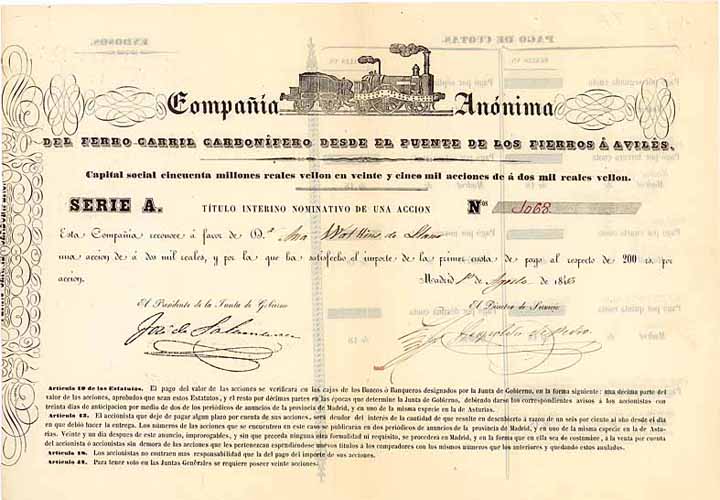 Compañía Anónima
DEL FERRO CARRIL CARBONÍFERO DESDE EL PUENTE DE LOS FIERROS Á AVILÉS.
Capital social cincuenta millones reales vellon en veinte y cinco mil acciones de á dos mil reales vellon.
SERIE A. TÍTULO INTERINO NOMINATIVO DE UNA ACCION Nos 1068
Esta Compañía reconoce á favor de D.ª Ana de Llano
una accion de á dos mil reales, y por la que ha satisfecho el importe de la primer cuota de pago al respecto de 200 rs. por
accion. Madrid 1º de Agosto de 184
El Presidente de la Junta de Gobierno El Director de Servicio
José de Salamanca
Artículo 10 de los Estatutos. El pago del valor de las acciones se verificará en las cajas de los Bancos ó Banqueros designados por la Junta de Gobierno, en la forma siguiente: una décima parte del
valor de las acciones, aprobados que sean estos Estatutos, y el resto por décimas partes en las épocas que determine la Junta de Gobierno, debiendo darse los correspondientes avisos á los accionistas con
treinta dias de anticipacion por medio de dos de los periódicos de anuncios de la provincia de Madrid, y en uno de la misma especie en la de Asturias.
Artículo 12. El accionista que deje de pagar algun plazo por cuenta de sus acciones, será deudor del interés de la cantidad de que resulte en descubierto á razon de un seis por ciento al año desde el dia
en que debió hacer la entrega. Los números de las acciones que se encuentren en este caso se publicarán en dos periódicos de anuncios de la provincia de Madrid, y en uno de la misma especie en la de Asturias.
Veinte y un dia despues de este anuncio, improrogables, y sin que preceda ninguna otra formalidad ni requisito, se procederá en Madrid, y en la forma que en ella sea de costumbre, á la venta por cuenta
del accionista ó accionistas sin demora de las acciones que les pertenezcan espidiéndose nuevos títulos á los compradores con los mismos números que los anteriores y quedando estos anulados.
Los accionistas no contraen mas responsabilidad que la del pago del importe de sus acciones.
Para tener voto en las Juntas Generales se requiere poseer veinte acciones.